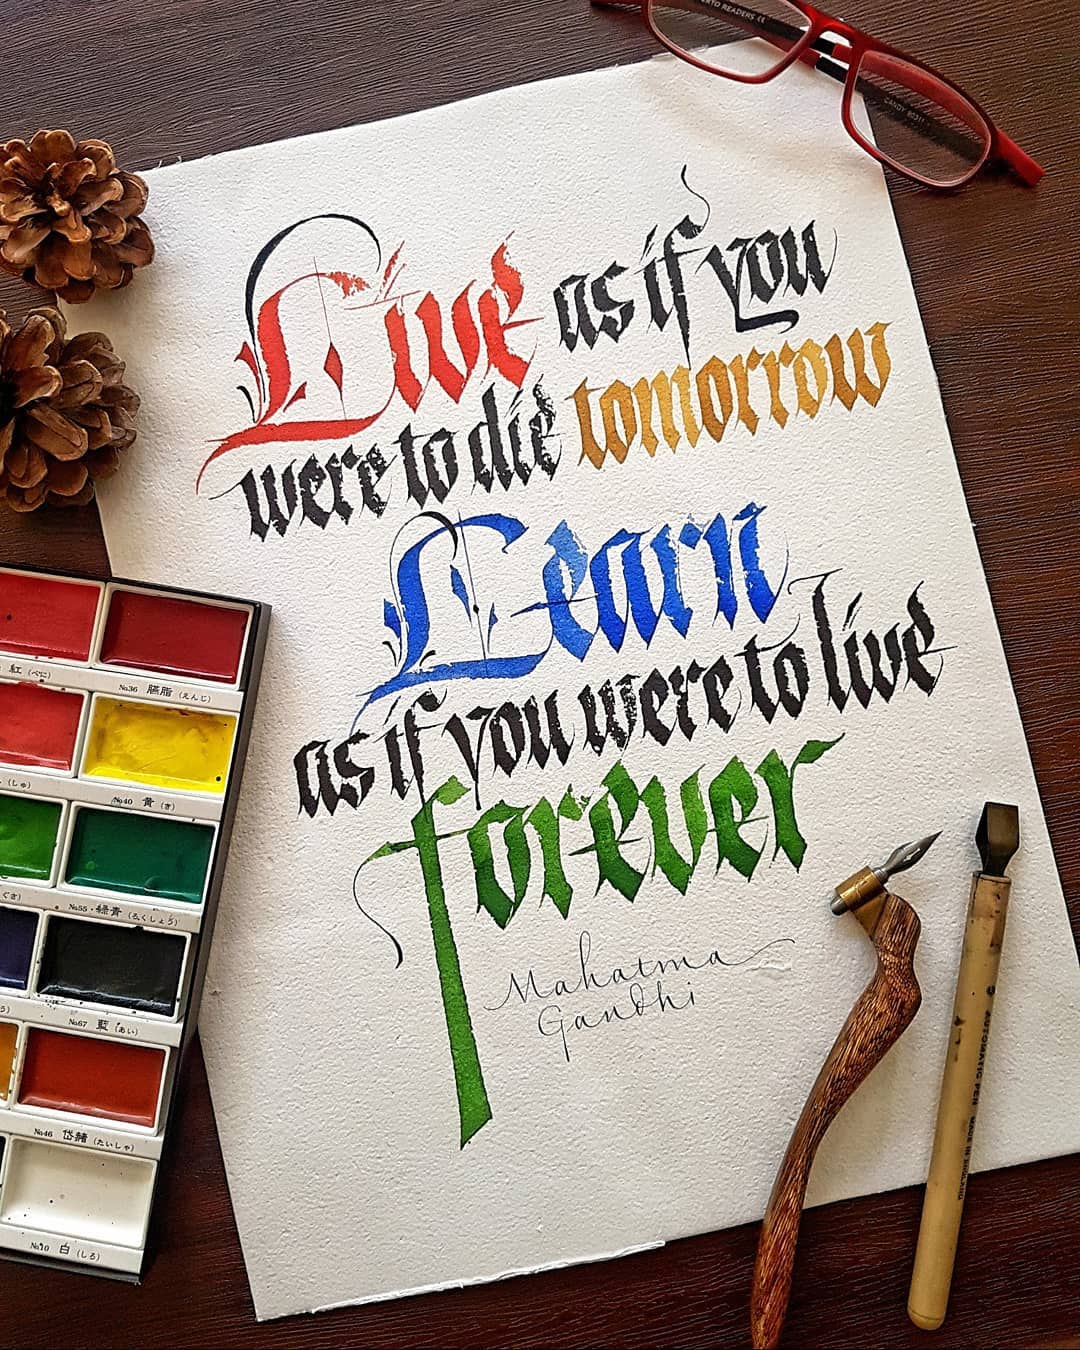 Live as if you
were to die tomorrow
Learn
as if you were to live
forever
Mahatma
Gandhi
READERS
CANDY
紅 (べに)
No36 臙脂 (えんじ)
(しゅ)
No40 黄 (き)
No55 緑青 (ろくしょう)
No67 藍 (あい)
No46 岱赭 (たいしゃ)
No10 白 (しろ)
AUTOMATIC PEN MADE IN ENGLAND